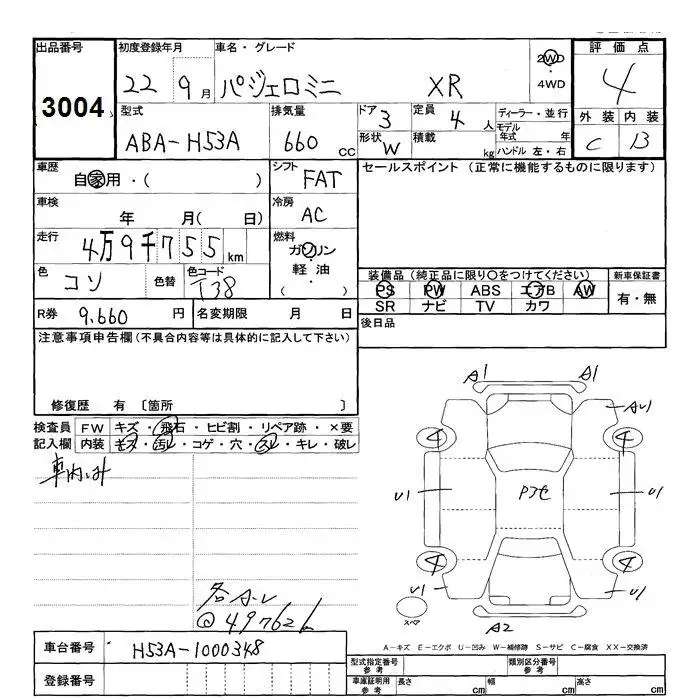 出品番号 3004
初度登録年月 22 9月
車名・グレード パジェロミニ XR
2WD・4WD
評価点 4
型式 ABA-H53A
排気量 660 CC
ドア 3
定員 4 人
形状 W
積載 kg
ディーラー・並行
モデル年式 年
ハンドル 左・右
外装 C
内装 B
車歴 自家用・( )
シフト FAT
セールスポイント (正常に機能するものに限ります)
車検 年 月( 日)
冷房 AC
走行 4万9千755km
燃料 ガソリン・軽油・( )
色 コン
色替
色コード T38
装備品(純正品に限り○をつけてください)
PS PW ABS エアB AW
SR ナビ TV カワ
新車保証書 有・無
R券 9,660円
名変期限 月 日
後日品
注意事項申告欄(不具合内容等は具体的に記入して下さい)
修復歴 有 〔箇所 〕
検査員記入欄
FW キズ・飛石・ヒビ割・リペア跡・×要
内装 キズ・汚レ・コゲ・穴・スレ・キレ・破レ
A1 A1
AU1
4 4
U1 U1
4 4
U1 U1
スペア
A2
A-キズ E-エクボ U-凹み W-補修跡 S-サビ C-腐食 XX-交換済
@49762k
車台番号 H53A-1000348
登録番号
型式指定番号 参考
類別区分番号 参考
車庫証明用 参考 長さ cm 幅 cm 高さ cm